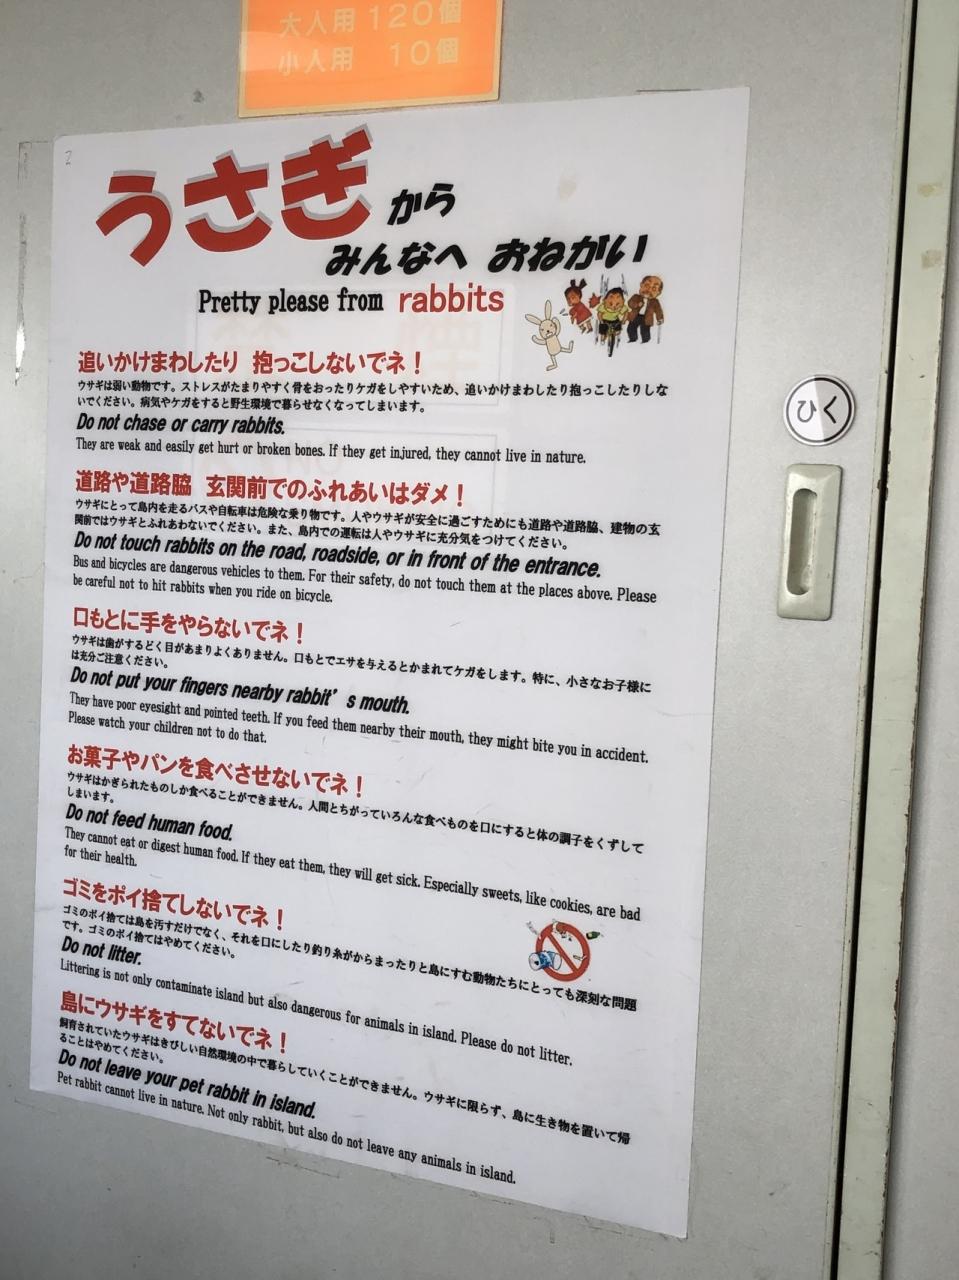 大人用 120個
小人用 10個
うさぎ から
みんなへ おねがい
Pretty please from rabbits
追いかけまわしたり 抱っこしないでネ！
ウサギは弱い動物です。ストレスがたまりやすく骨をおったりケガをしやすいため、追いかけまわしたり抱っこしたりしな
いでください。病気やケガをすると野生環境で暮らせなくなってしまいます。
Do not chase or carry rabbits.
They are weak and easily get hurt or broken bones. If they get injured, they cannot live in nature.
道路や道路脇 玄関前でのふれあいはダメ！
ウサギにとって島内を走るバスや自転車は危険な乗り物です。人やウサギが安全に過ごすためにも道路や道路脇、建物の玄
関前ではウサギとふれあわないでください。また、島内での運転は人やウサギに充分気をつけてください。
Do not touch rabbits on the road, roadside, or in front of the entrance.
Bus and bicycles are dangerous vehicles to them. For their safety, do not touch them at the places above. Please
be careful not to hit rabbits when you ride on bicycle.
口もとに手をやらないでネ！
ウサギは歯がするどく目があまりよくありません。口もとでエサを与えるとかまれてケガをします。特に、小さなお子様に
は充分ご注意ください。
Do not put your fingers nearby rabbit’s mouth.
They have poor eyesight and pointed teeth. If you feed them nearby their mouth, they might bite you in accident.
Please watch your children not to do that.
お菓子やパンを食べさせないでネ！
ウサギはかぎられたものしか食べることができません。人間とちがっていろんな食べものを口にすると体の調子をくずして
しまいます。
Do not feed human food.
They cannot eat or digest human food. If they eat them, they will get sick. Especially sweets, like cookies, are bad
for their health.
ゴミをポイ捨てしないでネ！
ゴミのポイ捨ては島を汚すだけでなく、それを口にしたり釣り糸がからまったりと島にすむ動物たちにとっても深刻な問題
です。ゴミのポイ捨てはやめてください。
Do not litter.
Littering is not only contaminate island but also dangerous for animals in island. Please do not litter.
島にウサギをすてないでネ！
飼育されていたウサギはきびしい自然環境の中で暮らしていくことができません。ウサギに限らず、島に生き物を置いて帰
ることはやめてください。
Do not leave your pet rabbit in island.
Pet rabbit cannot live in nature. Not only rabbit, but also do not leave any animals in island.
ひく